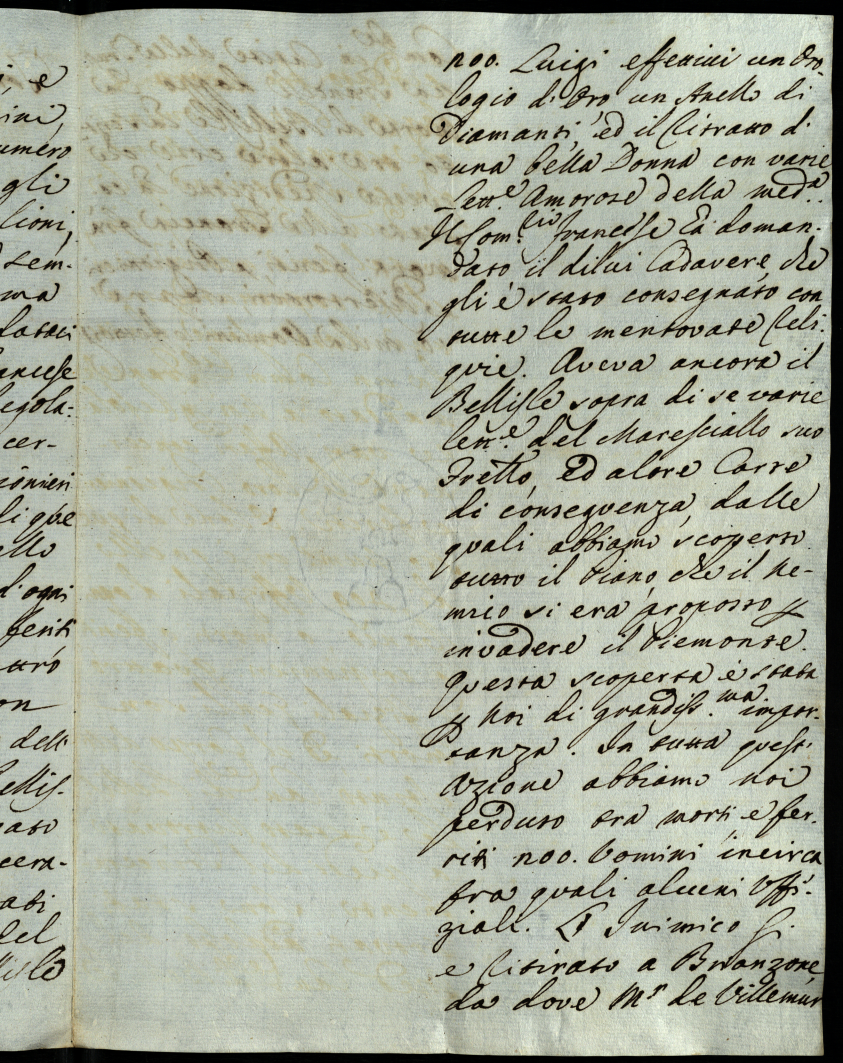 i e
ini,
umero
gli
lioni,
sem-
ma
ancese
egola:
cer-
ionieri
li que
ello
d'ogni
feriti
on
dell
ellis-
cera-
ati
del
noo. Luigi effettivi un Oro-
logio d'Oro un Anello di
Diamanti, ed il Ritratto d'
una bella Donna con varie
Lett.e Amorose della med.a.
Il Com.te francese hà doman-
dato il dilui Cadavere, che
gli è stato consegnato con
tutte le mentovate Reli-
quie. Aveva ancora il
Bellisle sopra di se varie
lett.e del Maresciallo suo
Fretto, ed altre Carte
di conseguenza, dalle
quali abbiamo scoperto
tutto il Piano, che il Ne-
mico si era proposto p
invadere il Piemonte.
Questa scoperta è stata
p Noi di grandiss.ma impor-
tanza. In tutta quest'
Azione abbiamo noi
perduto tra morti e fer-
riti noo. Uomini incirca
tra quali alcuni Uffi-
ziali. L'Inimico s'
e ritirato a Brianzone,
da dove M.r de Villemur